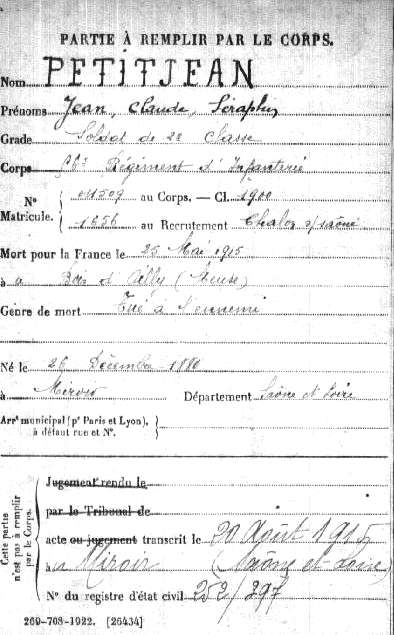 PARTIE À REMPLIR PAR LE CORPS.
Nom PETITJEAN
Prénoms Jean, Claude, Séraphin
Grade Soldat de 2e Classe
Corps Régiment d'Infanterie
Nº Matricule. { au Corps. — Cl. 1900
1656 au Recrutement Chalon s/saône
Mort pour la France le 25 Mai 1915
à a Bois d'Ailly (Meuse)
Genre de mort Tué à l'ennemi
Né le 26 Décembre 1880
à Miroir Département Saône et Loire
Arrt municipal (pr Paris et Lyon),
à défaut rue et Nº.
Cette partie n'est pas à remplir par le Corps.
Jugement rendu le
par le Tribunal de
acte ou jugement transcrit le 20 Août 1915
à Miroir (Saône-et-Loire)
Nº du registre d'état civil 252/297
269-708-1922. [26434]